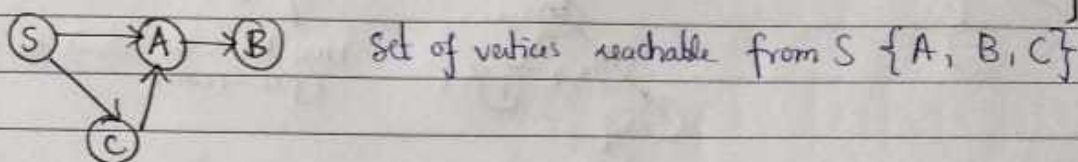 S A B Set of vertices reachable from S {A, B, C}
C